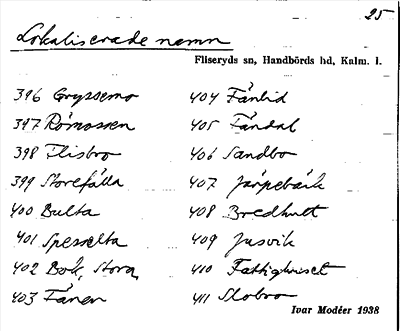 25
Lokaliserade namn
Fliseryds sn, Handbörds hd, Kalm. l.
396 Gryssemo
397 Römossen
398 Flisbro
399 Storefälla
400 Bulta
401 Spesselta
402 Bok, Stora
403 Fånen
404 Fånlid
405 Fåndal
406 Sandbo
407 Järpebäck
408 Bredhult
409 Jusvik
410 Fattighuset
411 Slobro
Ivar Modéer 1938